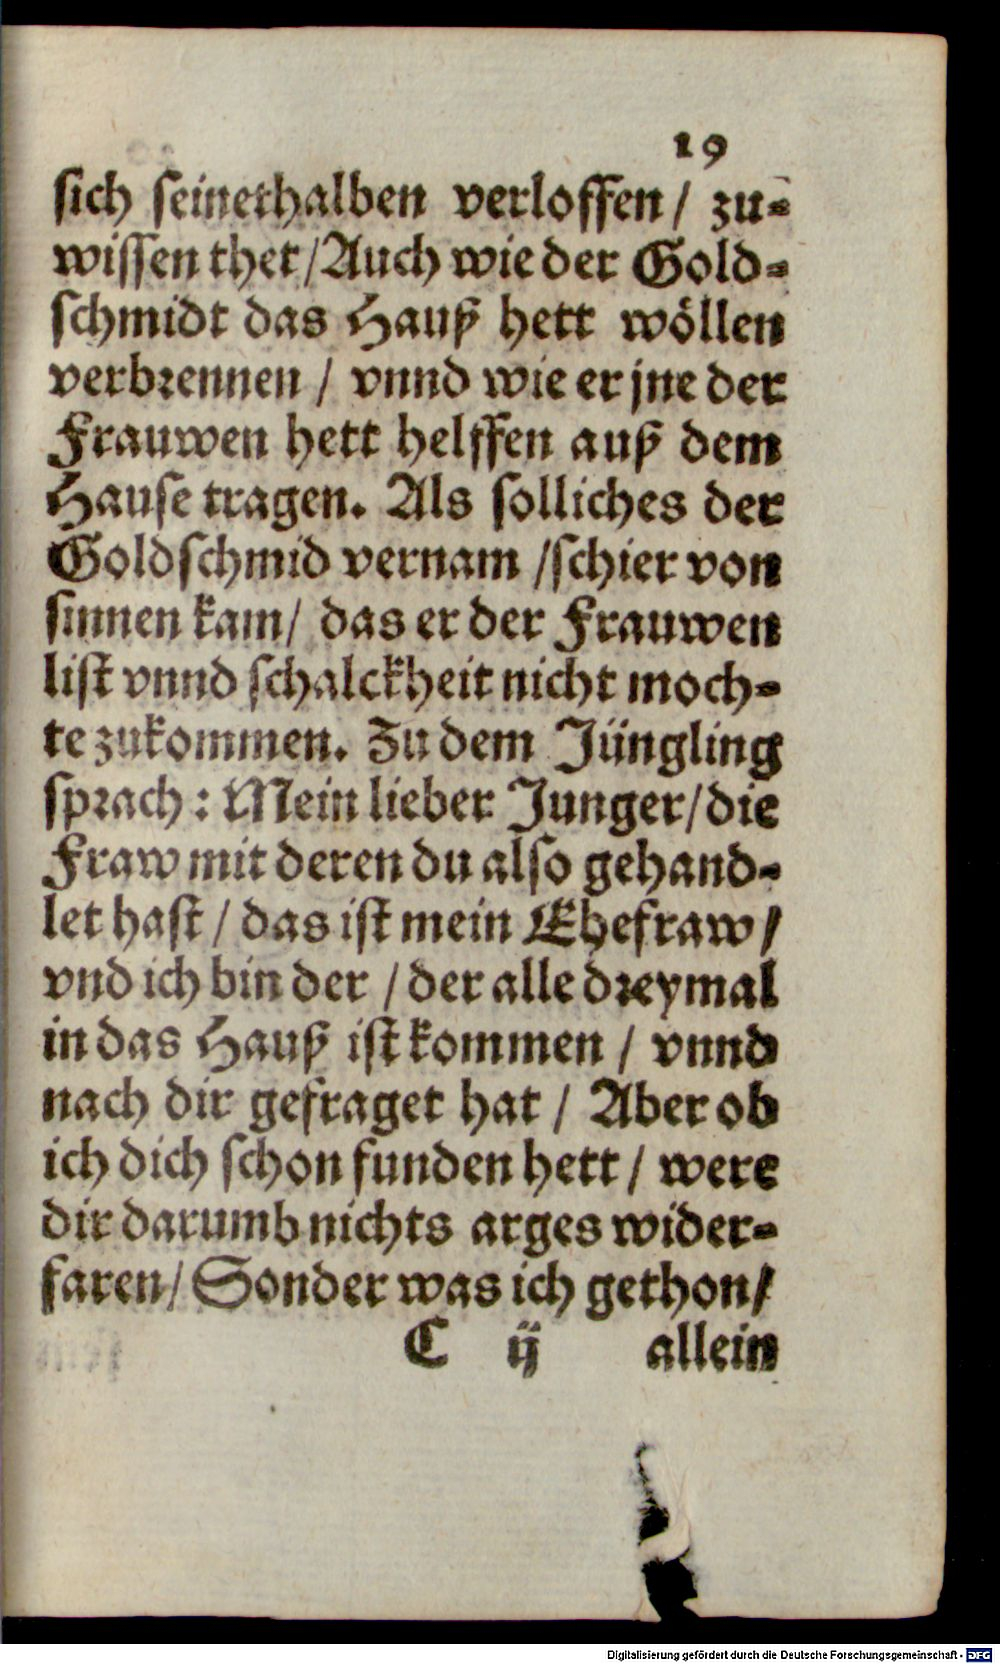 19
sich seinethalben verloffen / zu-
wissen thet / Auch wie der Gold-
schmidt das Hauß hett wöllen
verbrennen / vnnd wie er jne der
Frauwen hett helffen auß dem
Hause tragen. Als solliches der
Goldschmid vernam / schier von
sinnen kam / das er der Frauwen
list vnnd schalckheit nicht moch-
te zukommen. Zu dem Jüngling
sprach : Mein lieber Junger / die
Fraw mit deren du also gehand-
let hast / das ist mein Ehefraw /
vnd ich bin der / der alle dreymal
in das Hauß ist kommen / vnnd
nach dir gefraget hat / Aber ob
ich dich schon funden hett / were
dir darumb nichts arges wider-
faren / Sonder was ich gethon /
C ij allein
Digitalisierung gefördert durch die Deutsche Forschungsgemeinschaft - DFG